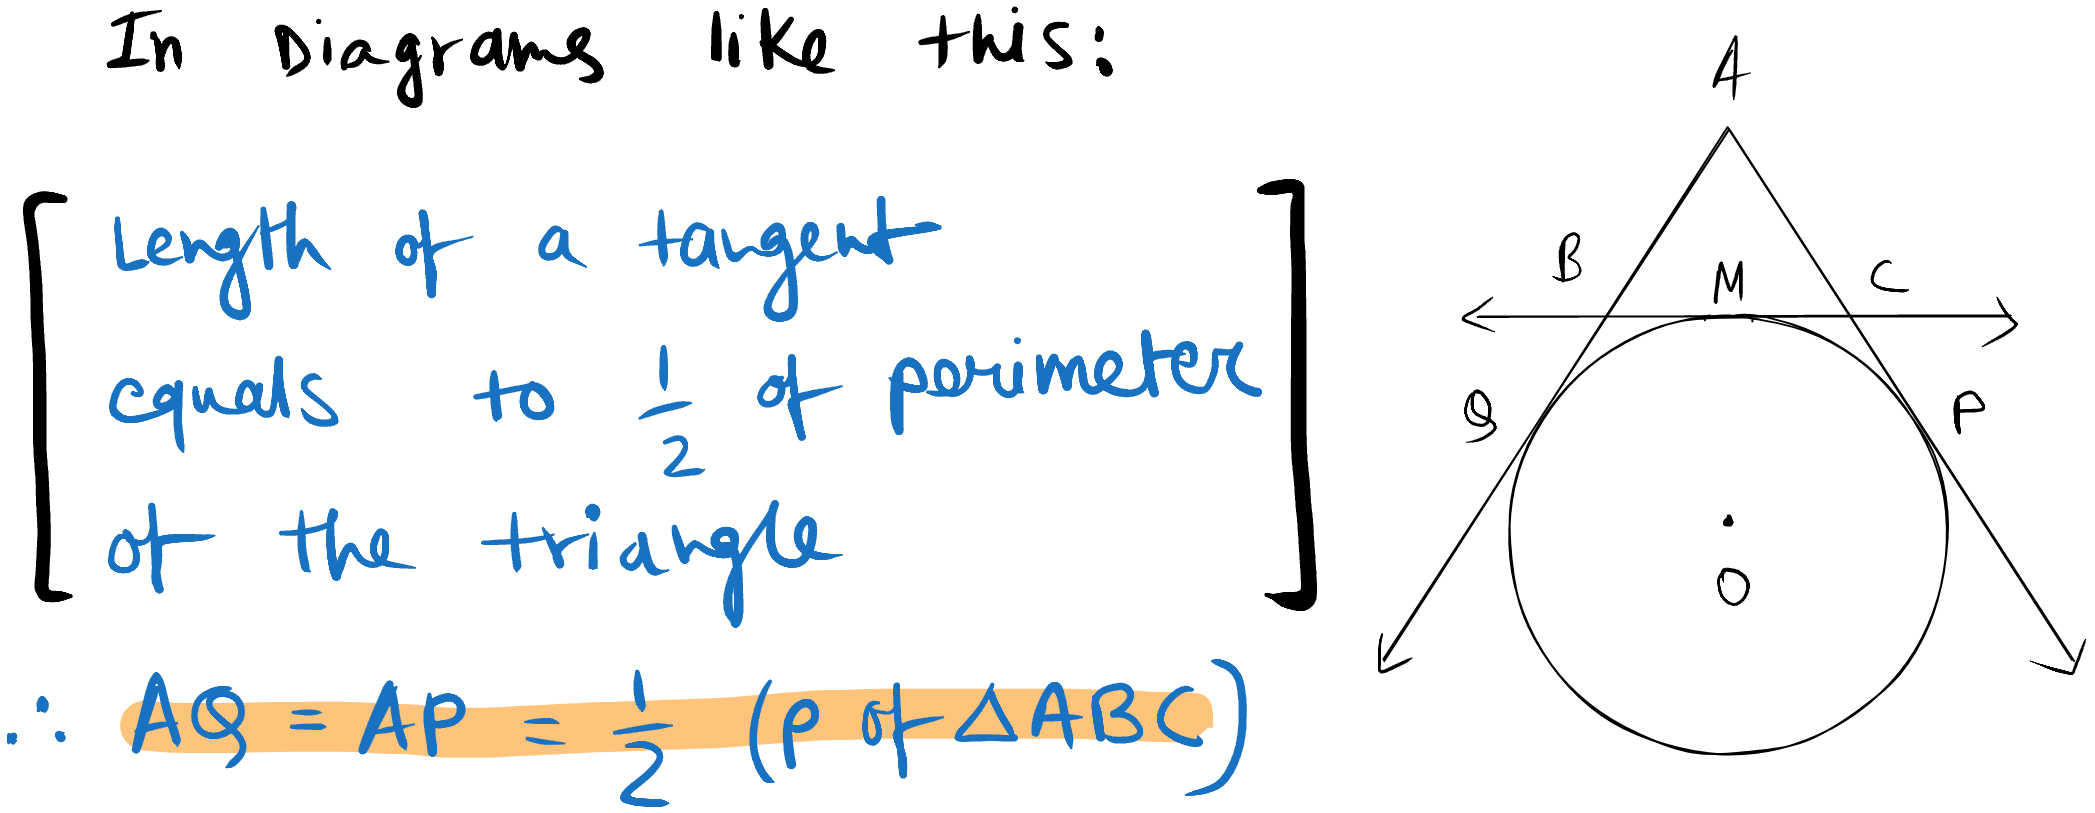 In Diagrams like this:
Length of a tangent
equals to 1/2 of perimeter
of the triangle
∴ AQ = AP = 1/2 (P of △ABC)
A
B M C
Q P
O